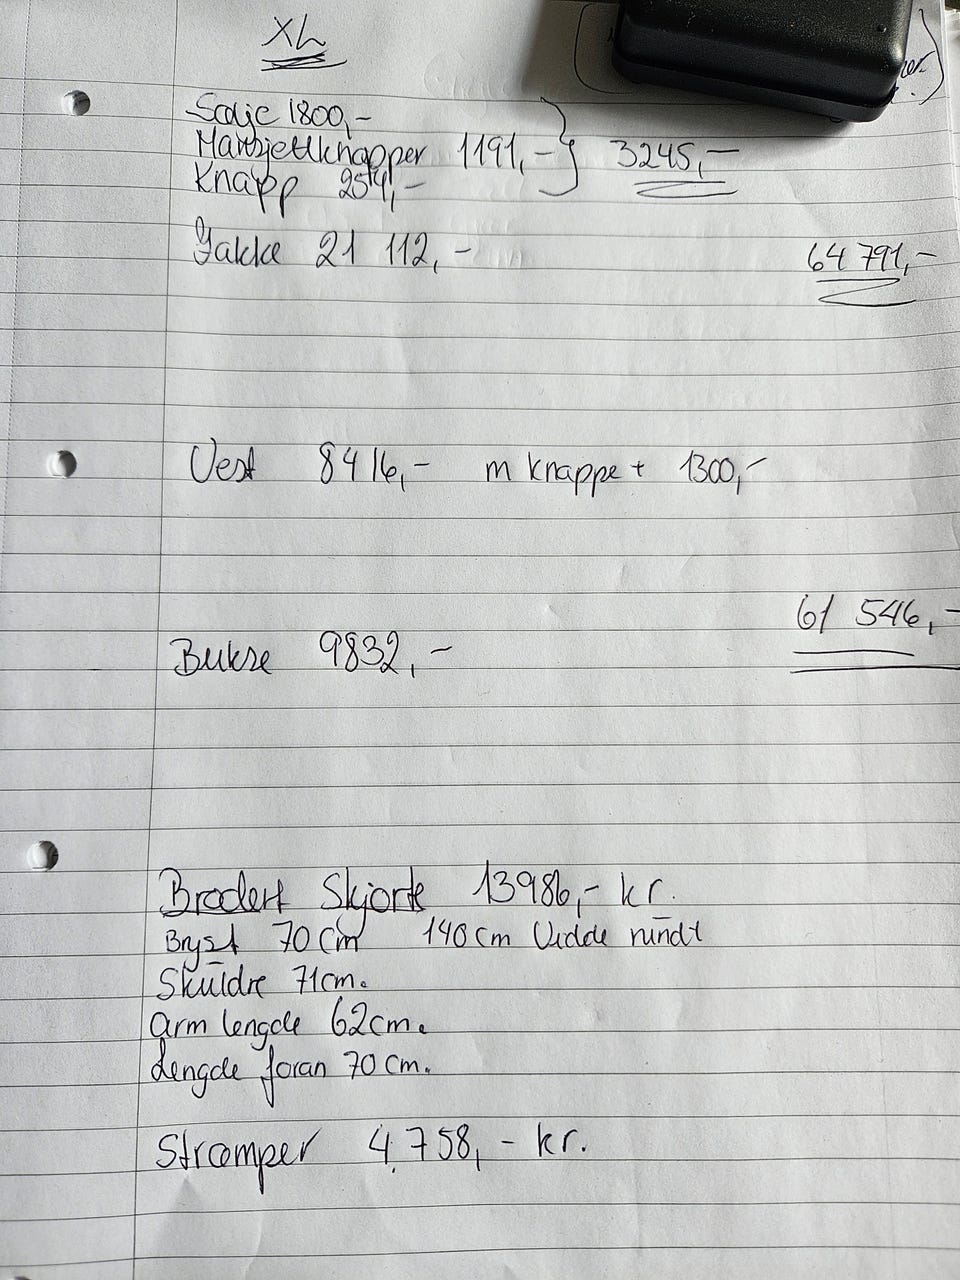 XL
Sølje 1800,-
Mansjettknapper 1191,- } 3245,-
Knapp 254,-
Jakke 21 112,- 64 791,-
Vest 8416,- m knappe + 1300,-
61 546,-
Bukse 9832,-
Brodert Skjorte 13986,- kr.
Bryst 70 cm 140 cm Vidde rundt
Skuldre 71cm.
Arm lengde 62cm.
Lengde foran 70 cm.
Strømper 4.758,- kr.